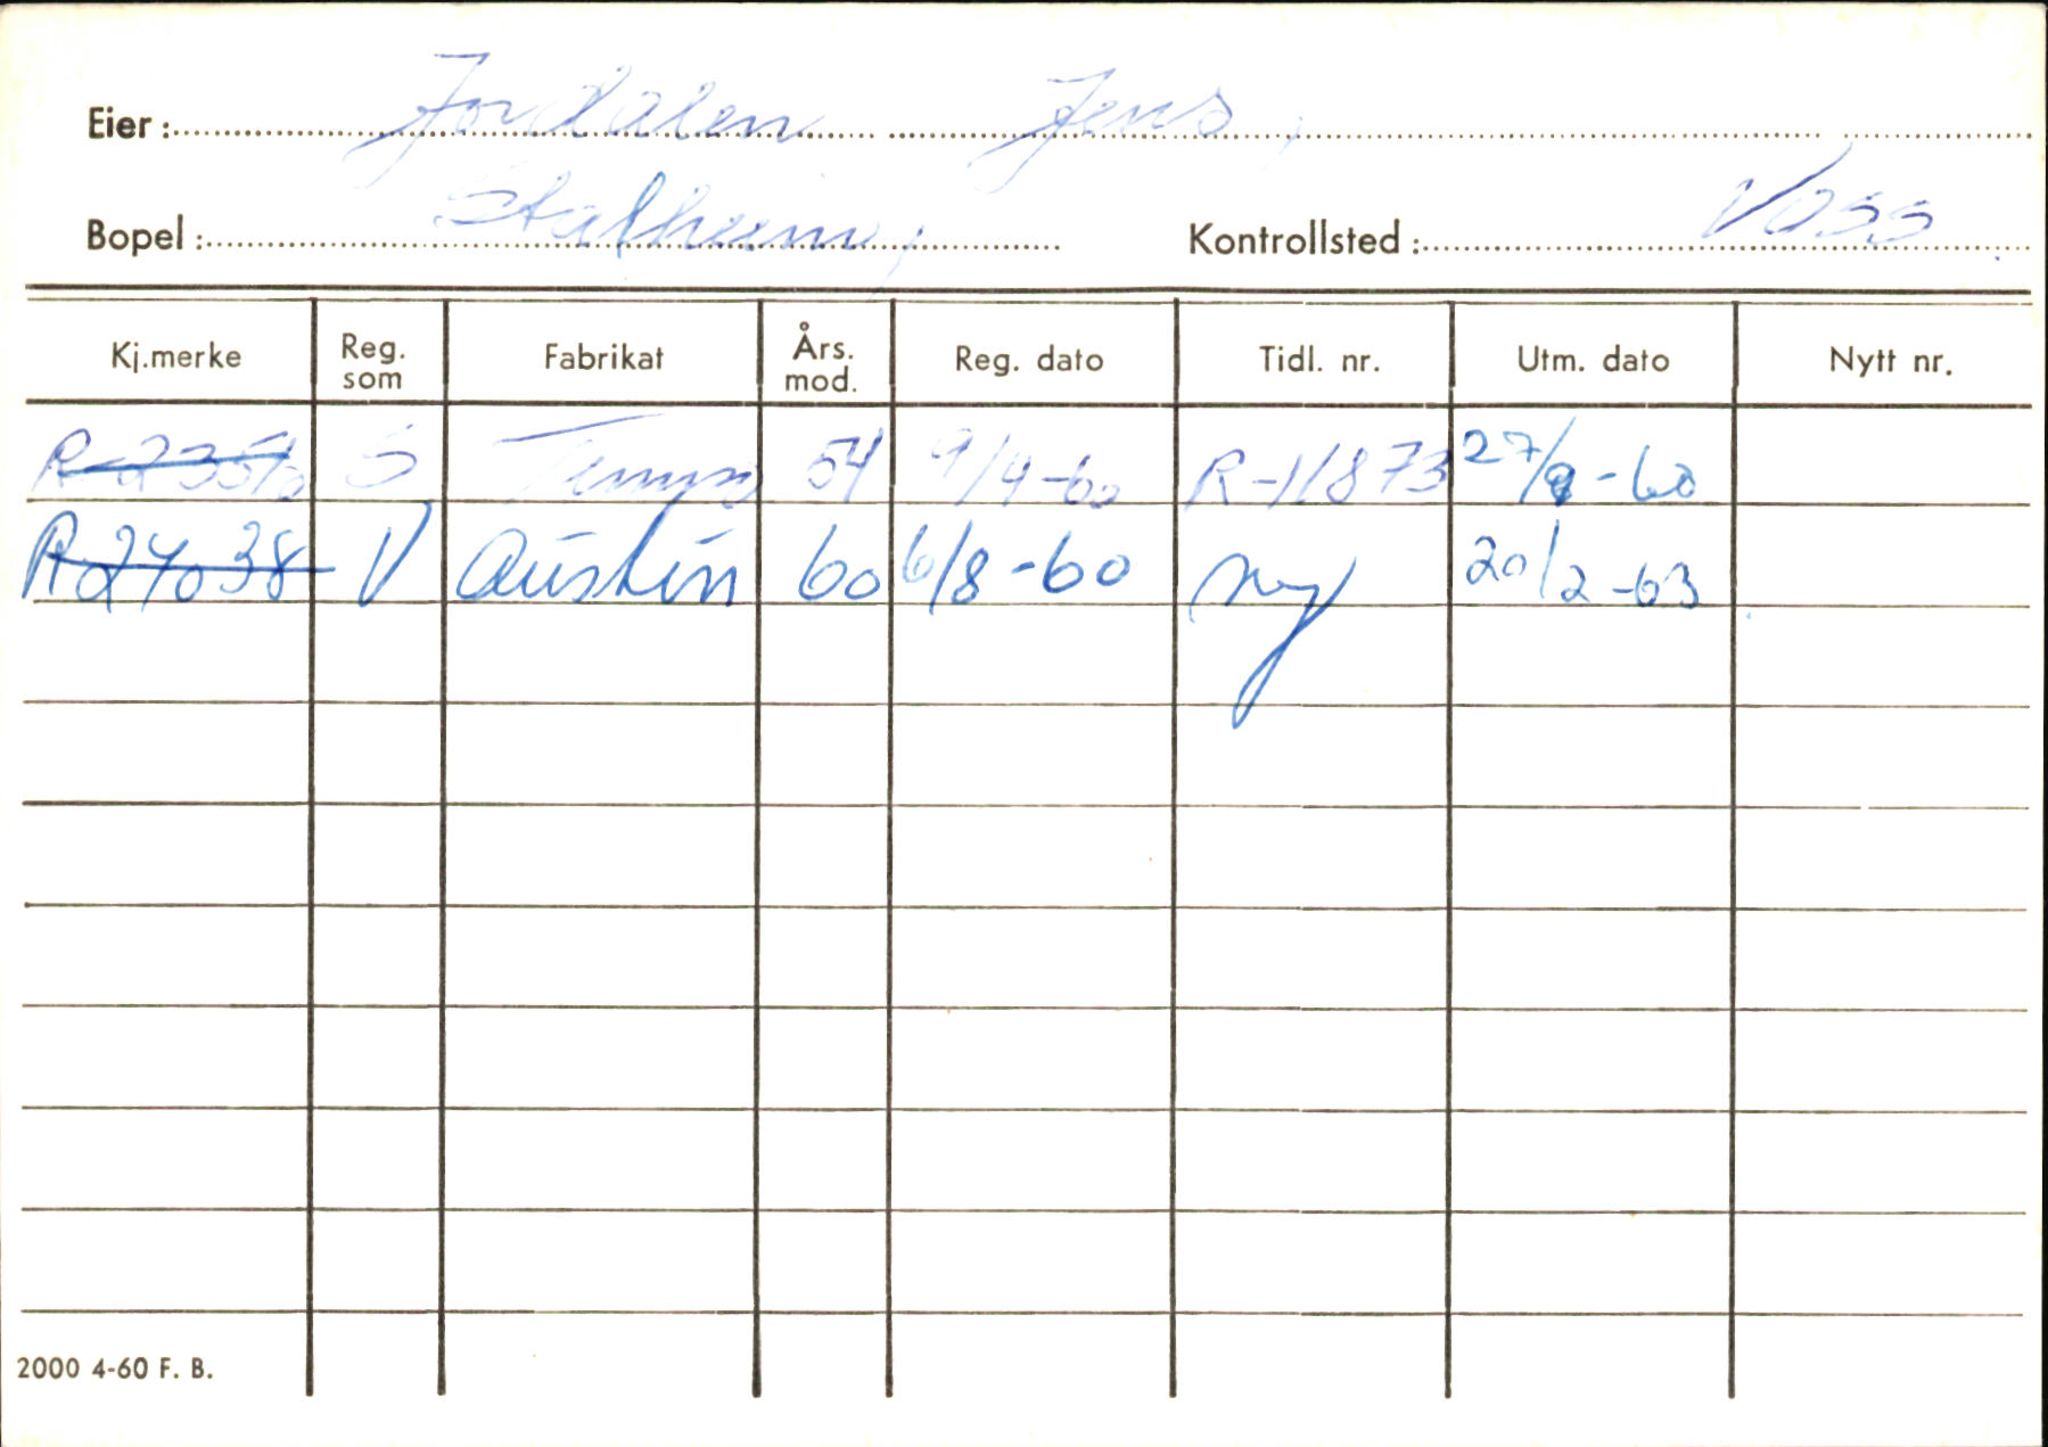 Eier: Jordalen Jens,
Bopel: Stalheim, Kontrollsted: Voss
Kj.merke Reg. som Fabrikat Års. mod. Reg. dato Tidl. nr. Utm. dato Nytt nr.
S Tempo 54 9/4-60 R-11873 27/9-60
R-24038 V Austin 60 6/8-60 ny 20/2-63
2000 4-60 F. B.